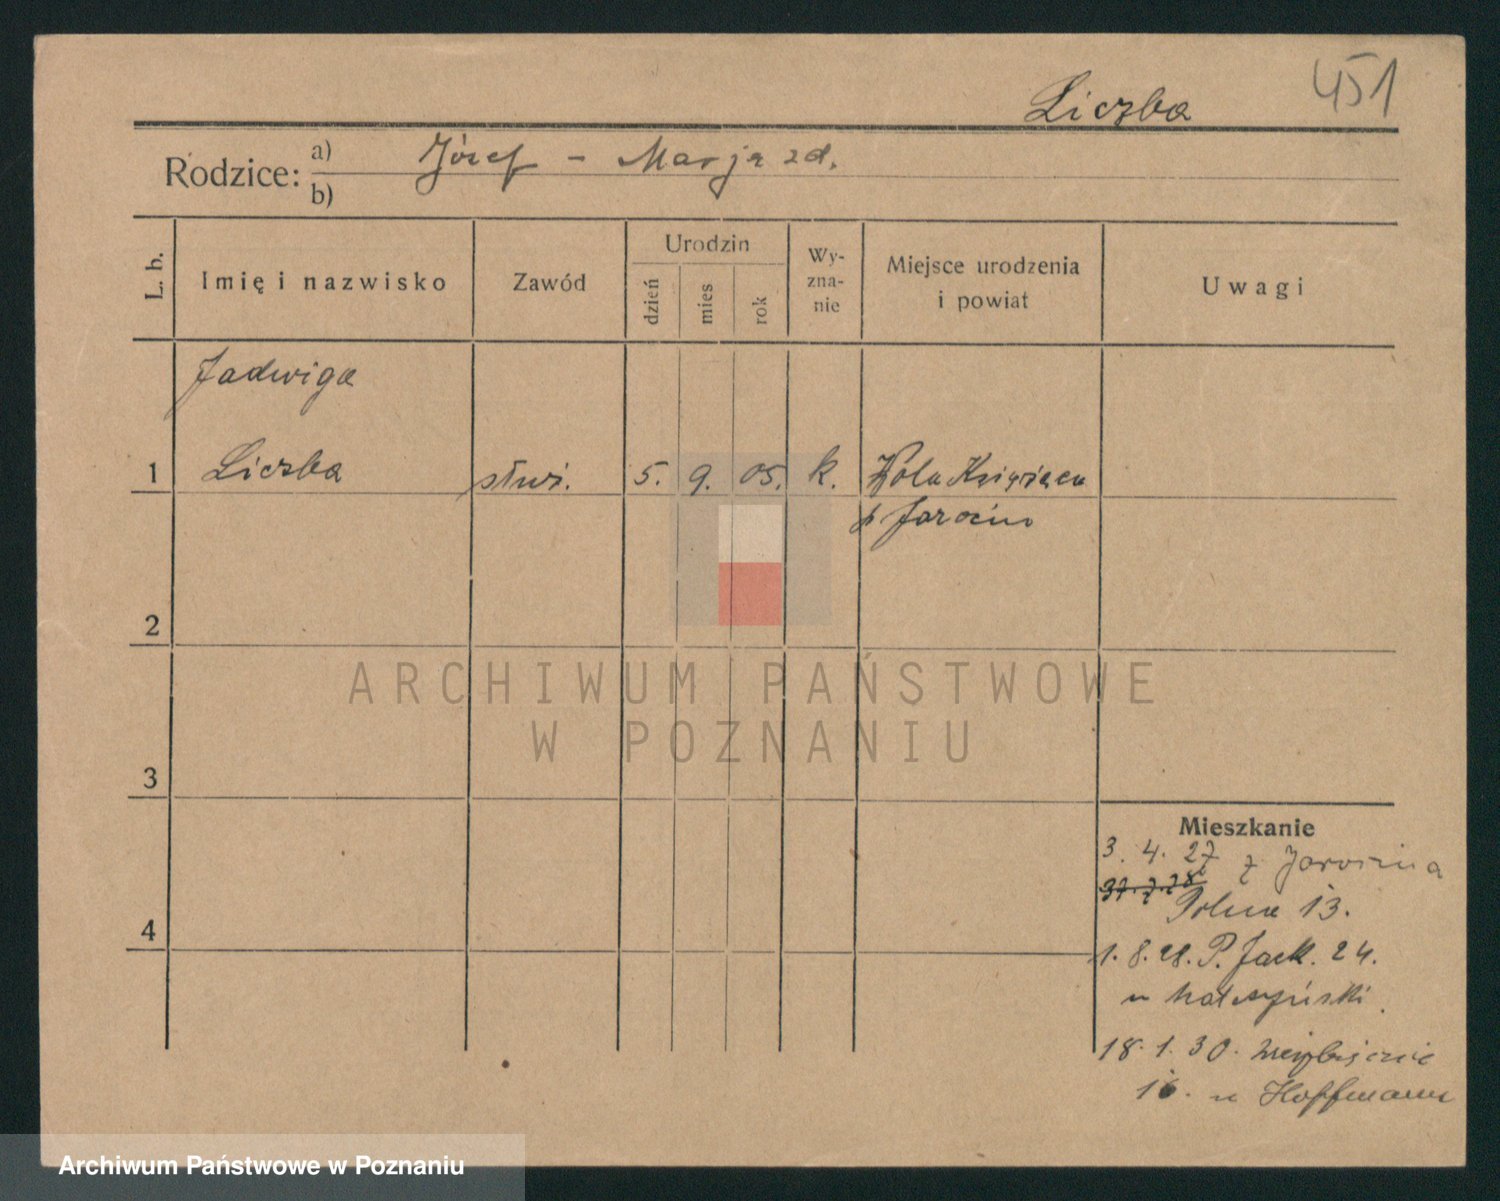 451
Liczba
Rodzice: a) Józef - Marja zd.
b)
L. b.
Imię i nazwisko
Zawód
Urodzin
dzień
mies
rok
Wy-
zna-
nie
Miejsce urodzenia
i powiat
Uwagi
Jadwiga
1 Liczba służ. 5. 9. 05. k. Wola Książęca
p Jarocin
2
3
4
ARCHIWUM PAŃSTWOWE
W POZNANIU
Mieszkanie
3. 4. 27 z Jarocina
Polna 13.
1. 8. 28. P. Jack. 24.
u
18. 1. 30.
16. u Hoffmann
Archiwum Państwowe w Poznaniu